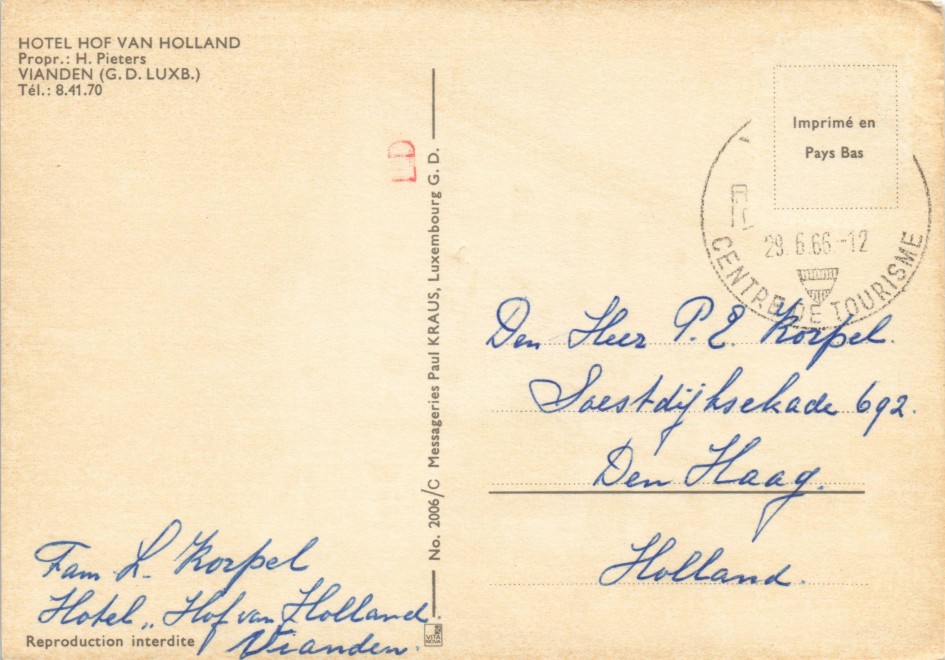 HOTEL HOF VAN HOLLAND
Propr.: H. Pieters
VIANDEN (G. D. LUXB.)
Tél.: 8.41.70
LD
No. 2006/C Messageries Paul KRAUS, Luxembourg G. D.
Imprimé en
Pays Bas
29.6.66-12
CENTRE DE TOURISME
Den Heer P. E. Korpel.
Soestdijksekade 692.
Den Haag.
Holland.
Fam. L. Korpel
Hotel „Hof van Holland.
Vianden.
Reproduction interdite
VITA
NOVA